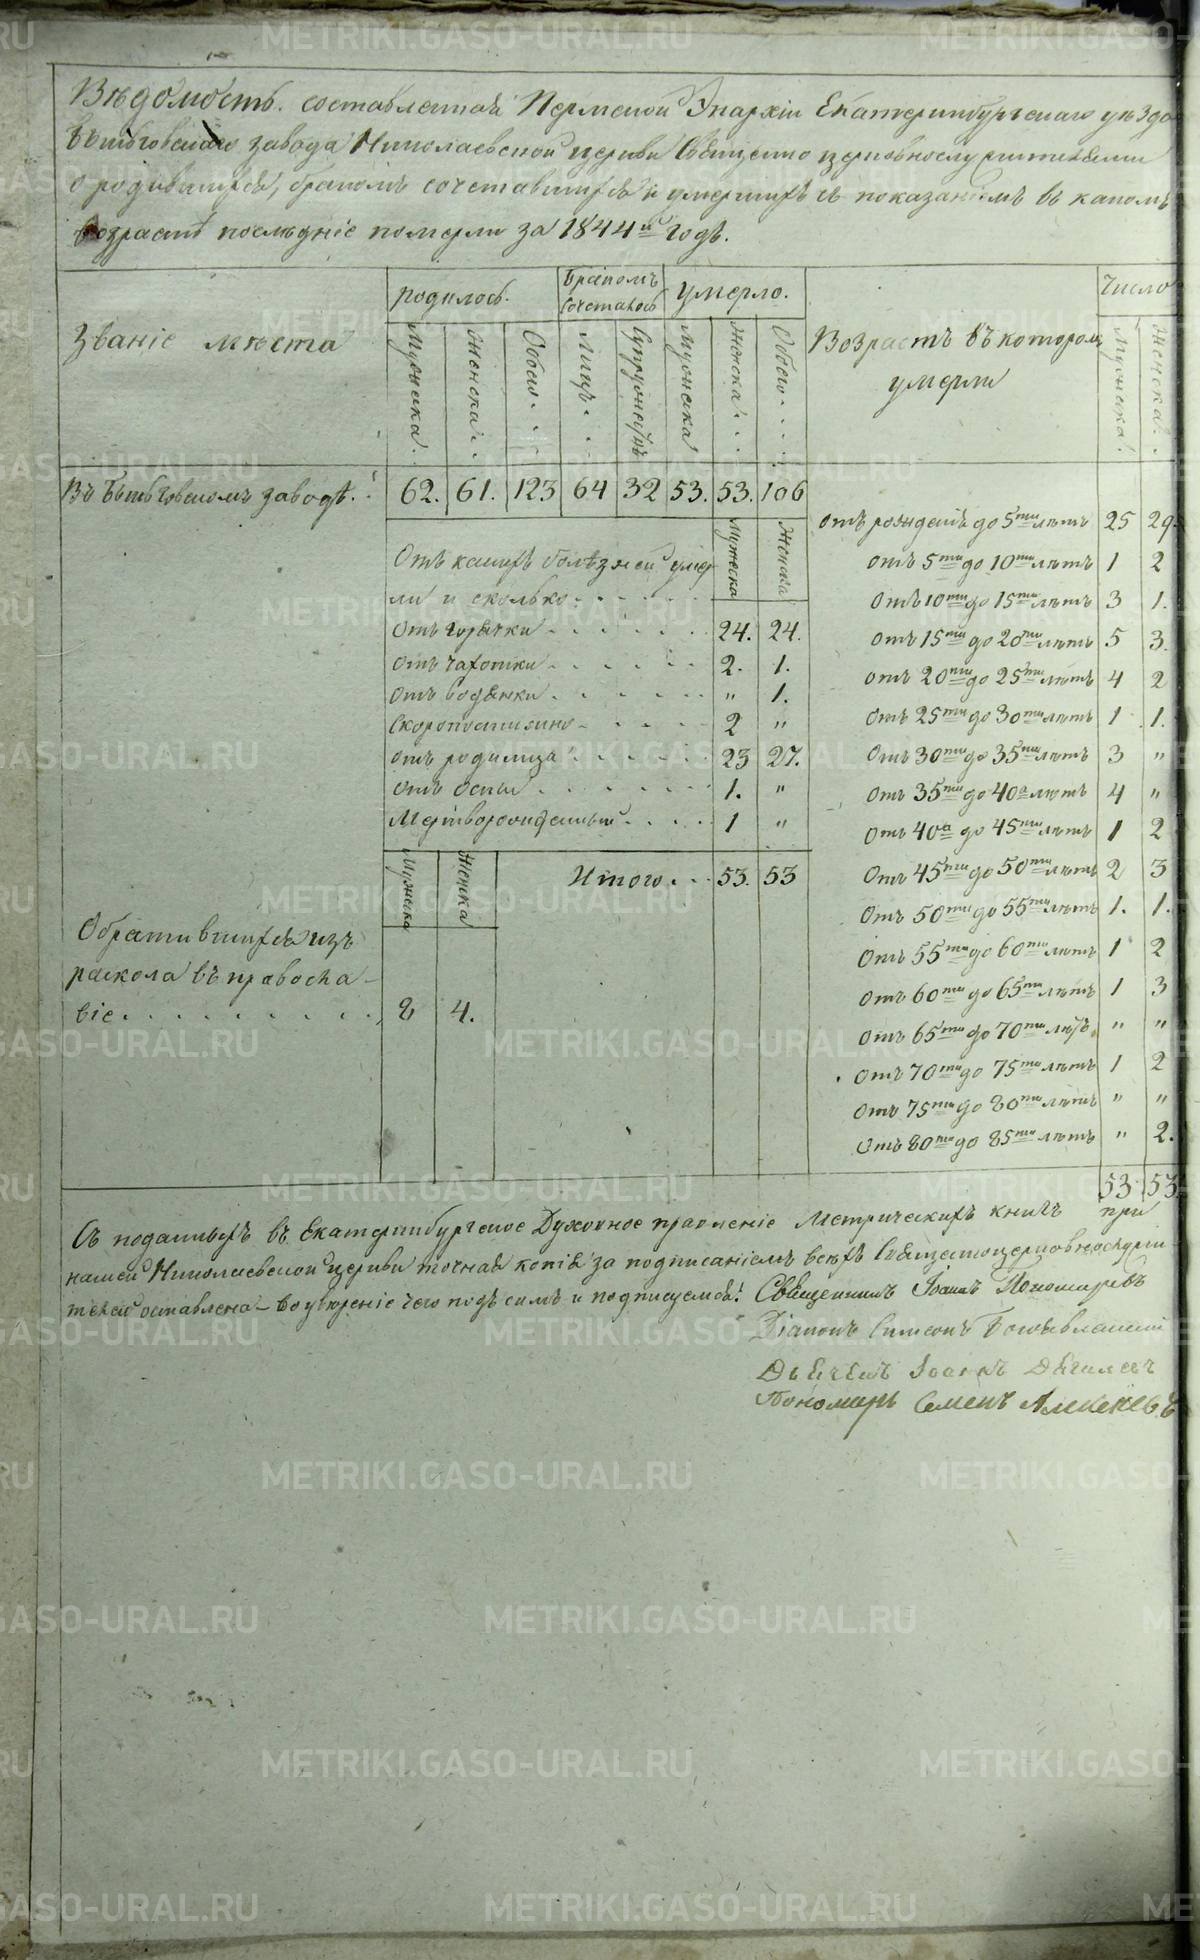 Вѣдомость. составленная Пермской Эпархіи Екатеринбургскаго уѣзда
завода Николаевской церкви Священно церковнослужителями
о родившихся, бракомъ сочетавшихся и умершихъ съ показаніемъ въ какомъ
возрастѣ послѣдніе померли за 1844й годъ.
Званіе мѣста
родилось.
бракомъ сочеталось
умерло.
Возрастъ въ которомъ умерли
Число
Мужеска.
Женска.
Обоего.
Лицъ.
Супружествъ
Мужеска
Женска.
Обоего.
Мужеска.
Женска.
Въ заводѣ. 62. 61. 123 64 32 53. 53. 106
Отъ какихъ болѣзней умер
ли и сколько
Мужеска
Женска
Отъ горячки 24. 24.
отъ чахотки 2. 1.
отъ водянки „ 1.
Скоропостижно 2 „
отъ родимца 23 27.
отъ оспы 1. „
Мертворожденный 1 „
Итого 53. 53
отъ рожденія до 5ти лѣтъ 25 29.
отъ 5ти до 10ти лѣтъ 1 2
отъ 10ти до 15ти лѣтъ 3 1.
отъ 15ти до 20ти лѣтъ 5 3.
отъ 20ти до 25ти лѣтъ 4 2
отъ 25ти до 30ти лѣтъ 1 1.
отъ 30ти до 35ти лѣтъ 3 „
отъ 35ти до 40а лѣтъ 4 „
отъ 40а до 45ти лѣтъ 1 2
отъ 45ти до 50ти лѣтъ 2 3
отъ 50ти до 55ти лѣтъ 1. 1.
отъ 55ти до 60ти лѣтъ 1 2
отъ 60ти до 65ти лѣтъ 1 3
отъ 65ти до 70ти лѣтъ „ „
отъ 70ти до 75ти лѣтъ 1 2
отъ 75ти до 80ти лѣтъ „ „
отъ 80ти до 85ти лѣтъ „ 2.
53 53
Мужеска
Женска
Обратившихся изъ
раскола въ правосла-
віе 8 4.
Съ подлинныхъ въ Екатеринбургское Духовное правленіе Метрическихъ книгъ при
нашей Николаевской церкви точная копія за подписаніемъ всѣхъ Священноцерковнослужи
телей оставлена – во увѣреніе чего подъ симъ и подписуемся! Священникъ Іоаннъ Пономаревъ
Діаконъ Симеонъ Богоявленскій
Дьячекъ Іоаннъ Дягилевъ
Пономарь Семенъ Алексѣевъ
METRIKI.GASO-URAL.RU